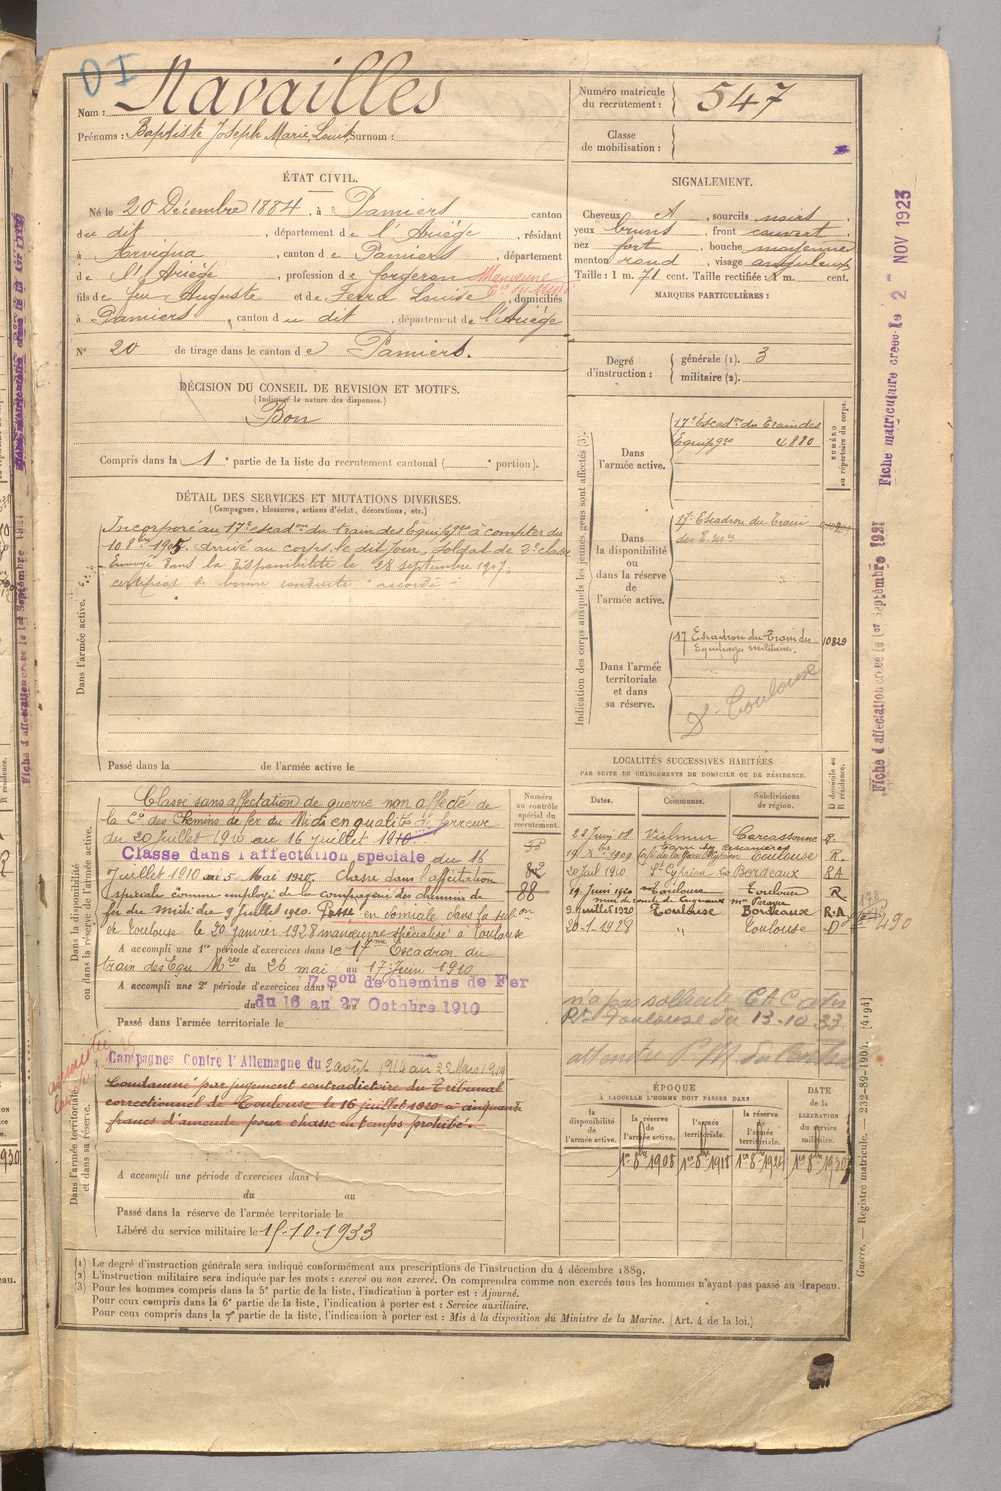 OI
Navailles
Nom :
Prénoms : Baptiste Joseph Marie Louis Surnom :
Numéro matricule du recrutement : 547
Classe de mobilisation :
ÉTAT CIVIL.
Né le 20 Décembre 1884, à Pamiers canton
du dit, département de l'Ariège, résidant
à Arvigna, canton de Pamiers, département
de l'Ariège, profession de forgeron Manœuvre
fils de feu Auguste et de Ferra Louise, domiciliés
à Pamiers, canton du dit, département de l'Ariège
N° 20 de tirage dans le canton de Pamiers.
SIGNALEMENT.
Cheveux, sourcils noirs,
yeux bruns, front couvert,
nez fort, bouche moyenne
menton rond, visage anguleux
Taille : 1 m. 71 cent. Taille rectifiée : 1 m. cent.
MARQUES PARTICULIÈRES :
Degré d'instruction : générale (1). 3
militaire (2).
DÉCISION DU CONSEIL DE REVISION ET MOTIFS.
(Indiquer la nature des dispenses.)
Bon
Compris dans la 1e partie de la liste du recrutement cantonal ( e portion).
DÉTAIL DES SERVICES ET MUTATIONS DIVERSES.
(Campagnes, blessures, actions d'éclat, décorations, etc.)
Dans l'armée active.
Incorporé au 17e escadron du train des Equipges à compter du
10 8bre 1905. Arrivé au corps le dit jour, soldat de 2e classe
Envoyé dans la disponibilité le 28 septembre 1907,
certificat de bonne conduite accordé
Passé dans la de l'armée active le
Indication des corps auxquels les jeunes gens sont affectés (3).
NUMÉRO au répertoire du corps.
Dans l'armée active.
17e Escadon du Train des
Equipges 4880
Dans la disponibilité ou dans la réserve de l'armée active.
17e Escadron du Train
des
Dans l'armée territoriale et dans sa réserve.
17 Escadron du Train des 10829
Equipages militaires.
D. Toulouse
LOCALITÉS SUCCESSIVES HABITÉES
PAR SUITE DE CHANGEMENTS DE DOMICILE OU DE RÉSIDENCE.
Dates. Communes. Subdivisions de région. D domicile ou R résidence.
22 Juin 08 Carcassonne R.
19 Xbre 1909 Toulouse R.
20 Juil 1910 St Cyprien Bordeaux RA
19 Juin 1920 Toulouse Toulouse R
9 juillet 1920 Toulouse Bordeaux R.A
20-1-1928 " Toulouse D
490
Dans la disponibilité ou dans la réserve de l'armée active.
Numéro au contrôle spécial du recrutement.
82
88
Classé sans affectation de guerre non affecté de
la Cie des Chemins de fer du Midi en qualité de ferreur
du 20 Juillet 1910 au 16 juillet 1910
Classe dans l'affectation spéciale du 16
Juillet 1910 au 5 Mai 1920. Classé dans l'affectation
spéciale comme employé de la compagnie des chemins de
fer du midi du 9 juillet 1920. Passé en domicile dans la subon
de Toulouse le 20 janvier 1928 manœuvre spécialisé à Toulouse
A accompli une 1re période d'exercices dans le 17me Escadron du
train des Equ. Mres du 26 mai au 17 Juin 1910
A accompli une 2e période d'exercices dans l 7 Son de chemins de Fer
du 16 au 27 Octobre 1910
Passé dans l'armée territoriale le
n'a pas sollicité C.A.C avis
Rt Toulouse du 13-10-33
Dans l'armée territoriale et dans sa réserve.
Campagnes Contre l'Allemagne du 2 août 1914 au 22 Mars 1919
Condamné par jugement contradictoire du Tribunal
correctionnel de Toulouse le 16 juillet 1920 à cinquante
francs d'amende pour chasse en temps prohibé.
A accompli une période d'exercices dans l
du au
Passé dans la réserve de l'armée territoriale le
Libéré du service militaire le 15-10-1933
ÉPOQUE
À LAQUELLE L'HOMME DOIT PASSER DANS
la disponibilité de l'armée active. la réserve de l'armée active. l'armée territoriale. la réserve de l'armée territoriale. DATE de la LIBÉRATION du service militaire.
1er 8bre 1908 1er 8bre 1918 1er 8bre 1924 1er 8bre 1930
(1) Le degré d'instruction générale sera indiqué conformément aux prescriptions de l'instruction du 4 décembre 1889.
(2) L'instruction militaire sera indiquée par les mots : exercé ou non exercé. On comprendra comme non exercés tous les hommes n'ayant pas passé au drapeau.
(3) Pour les hommes compris dans la 5e partie de la liste, l'indication à porter est : Ajourné.
Pour ceux compris dans la 6e partie de la liste, l'indication à porter est : Service auxiliaire.
Pour ceux compris dans la 7e partie de la liste, l'indication à porter est : Mis à la disposition du Ministre de la Marine. (Art. 4 de la loi.)
Guerre. — Registre matricule. — 232-89-1904. [4194]
Fiche matriculaire créée le 2 NOV 1923
Fiche d'affectation créée le 1er Septembre 1921